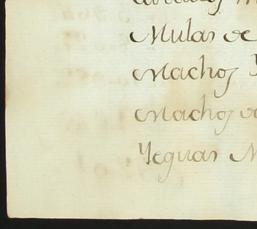 Mulas de
Machos Y
Machos de
Yeguas M